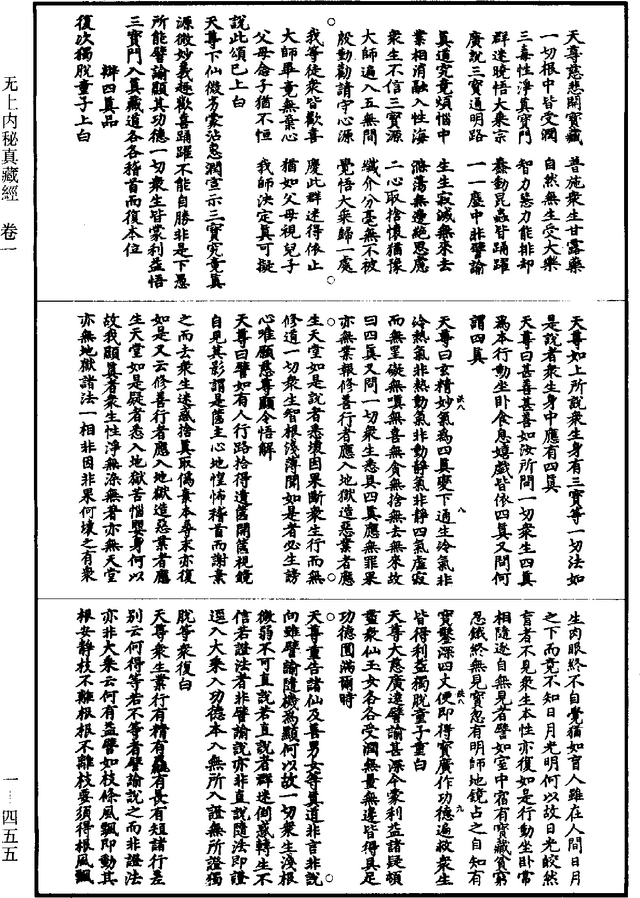 天尊慈悲開寶藏　普施衆生甘露藥
一切根中皆受潤　自然無生受大樂
三毒性淨真寶門　智力慧力能排却
群迷曉悟大乘宗　蠢動昆蟲皆踊躍
廣說三寶通明路　一一塵中非譬諭
真道究竟煩惱中　生生寂滅無來去
業相消融入性海　滌蕩無邊絕思慮
衆生不信三寶源　二心取捨懷猶豫
大師遍入五無間　纖介分毫無不被
殷勤勸請守心源　覺悟大乘歸一處
我等徒衆皆歡喜　慶此群迷得依止
大師畢竟無棄心　猶如父母視兒子
父母念子猶不恒　我師決定真可擬
說此頌已上白
天尊下仙微劣蒙沾惠潤宣示三寶究竟真
源微妙義趣歡喜踊躍不能自勝非是下愚
所能譬諭顯其功德一切衆生皆蒙利益悟
三寶門入真藏道各各稽首而復本位
辯四真品
復次獨脫童子上白
天尊如上所說衆生身有三寶等一切法如
是說者衆生身中應有四真
天尊曰甚善甚善如汝所問一切衆生四真
爲本行動坐卧食息嬉戲皆依四真又問何
謂四真
天尊曰玄精妙氣爲四真變下通生冷氣非
冷熱氣非熱動氣非動靜氣非靜四氣虛寂
而無罣礙無嗔無喜無貪無捨無去無來故
曰四真又問一切衆生悉具四真應無罪果
亦無業報修善行者應入地獄造惡業者應
生天堂如是說者悉壞因果斷衆生行而無
修道一切衆生智根淺薄聞如是者必生謗
心唯願慈尊顯令悟解
天尊曰譬如有人行路拾得遺篋開篋視鏡
自見其影謂是篋主心地惶怖稽首而謝棄
之而去衆生迷惑捨真取僞棄本尋末亦復
如是又云修善行者應入地獄造惡業者應
生天堂如是疑者悉入地獄苦惱嬰身何以
故我顯真者衆生性淨無染無著亦無天堂
亦無地獄諸法一相非因非果何壞之有衆
生肉眼終不自覺猶如盲人雖在人間日月
之下而竟不知日月光明何以故日光皎然
盲者不見衆生本性亦復如是行動坐卧常
相隨逐自無見者譬如室中宿有寶藏貧窮
忍餓終無見寶忽有明師地鏡占之自知有
寶鑿深四丈便即得寶廣作功德遍救衆生
皆得利益獨脫童子重白
天尊大慈廣遠譬諭甚深今蒙利益諸疑頓
盡衆仙玉女各各受潤無量無邊皆得具足
功德圓滿爾時
天尊重告諸仙及善男女等真道非言非說
向雖譬諭隨機爲顯何以故一切衆生淺根
微弱不可直說者直說者群迷倒惑轉生不
信若證法者非譬諭說亦非直說隨法即證
逗入大乘入功德本入無所入證無所證獨
脫等衆復白
天尊衆生業行有精有麤有長有短諸行差
別云何得等若不等者譬諭說之而非證法
亦非大乘云何有益譬如枝條風飄即動其
根安靜枝不離根根不離枝要須得根風飄
无上内秘真藏經　卷一
一—四五五